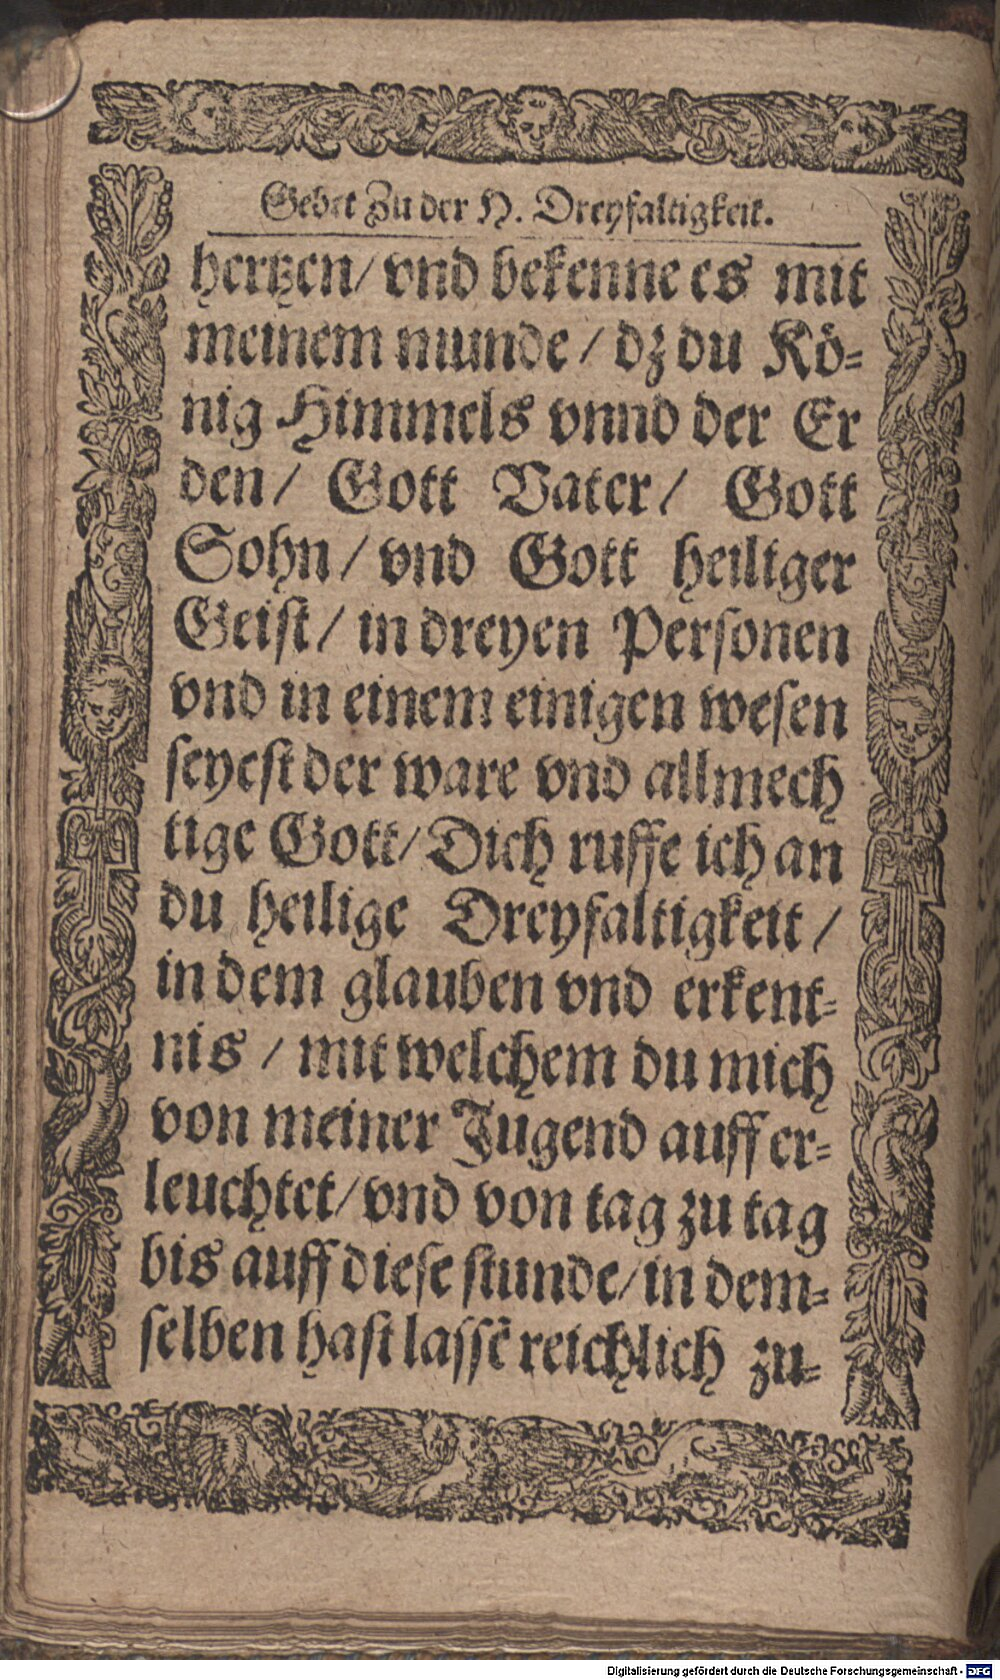 Gebet Zu der H. Dreyfaltigkeit.
hertzen/ vnd bekenne es mit
meinem munde / dz du Kö-
nig Himmels vnnd der Er
den/ Gott Vater/ Gott
Sohn/ vnd Gott heiliger
Geist/ in dreyen Personen
vnd in einem einigen wesen
seyest der ware vnd allmech
tige Gott/ Dich ruffe ich an
du heilige Dreyfaltigkeit /
in dem glauben vnd erkent-
nis / mit welchem du mich
von meiner Jugend auff er-
leuchtet/ vnd von tag zu tag
bis auff diese stunde/ in dem-
selben hast lassē reichlich zu-
Digitalisierung gefördert durch die Deutsche Forschungsgemeinschaft - DFG